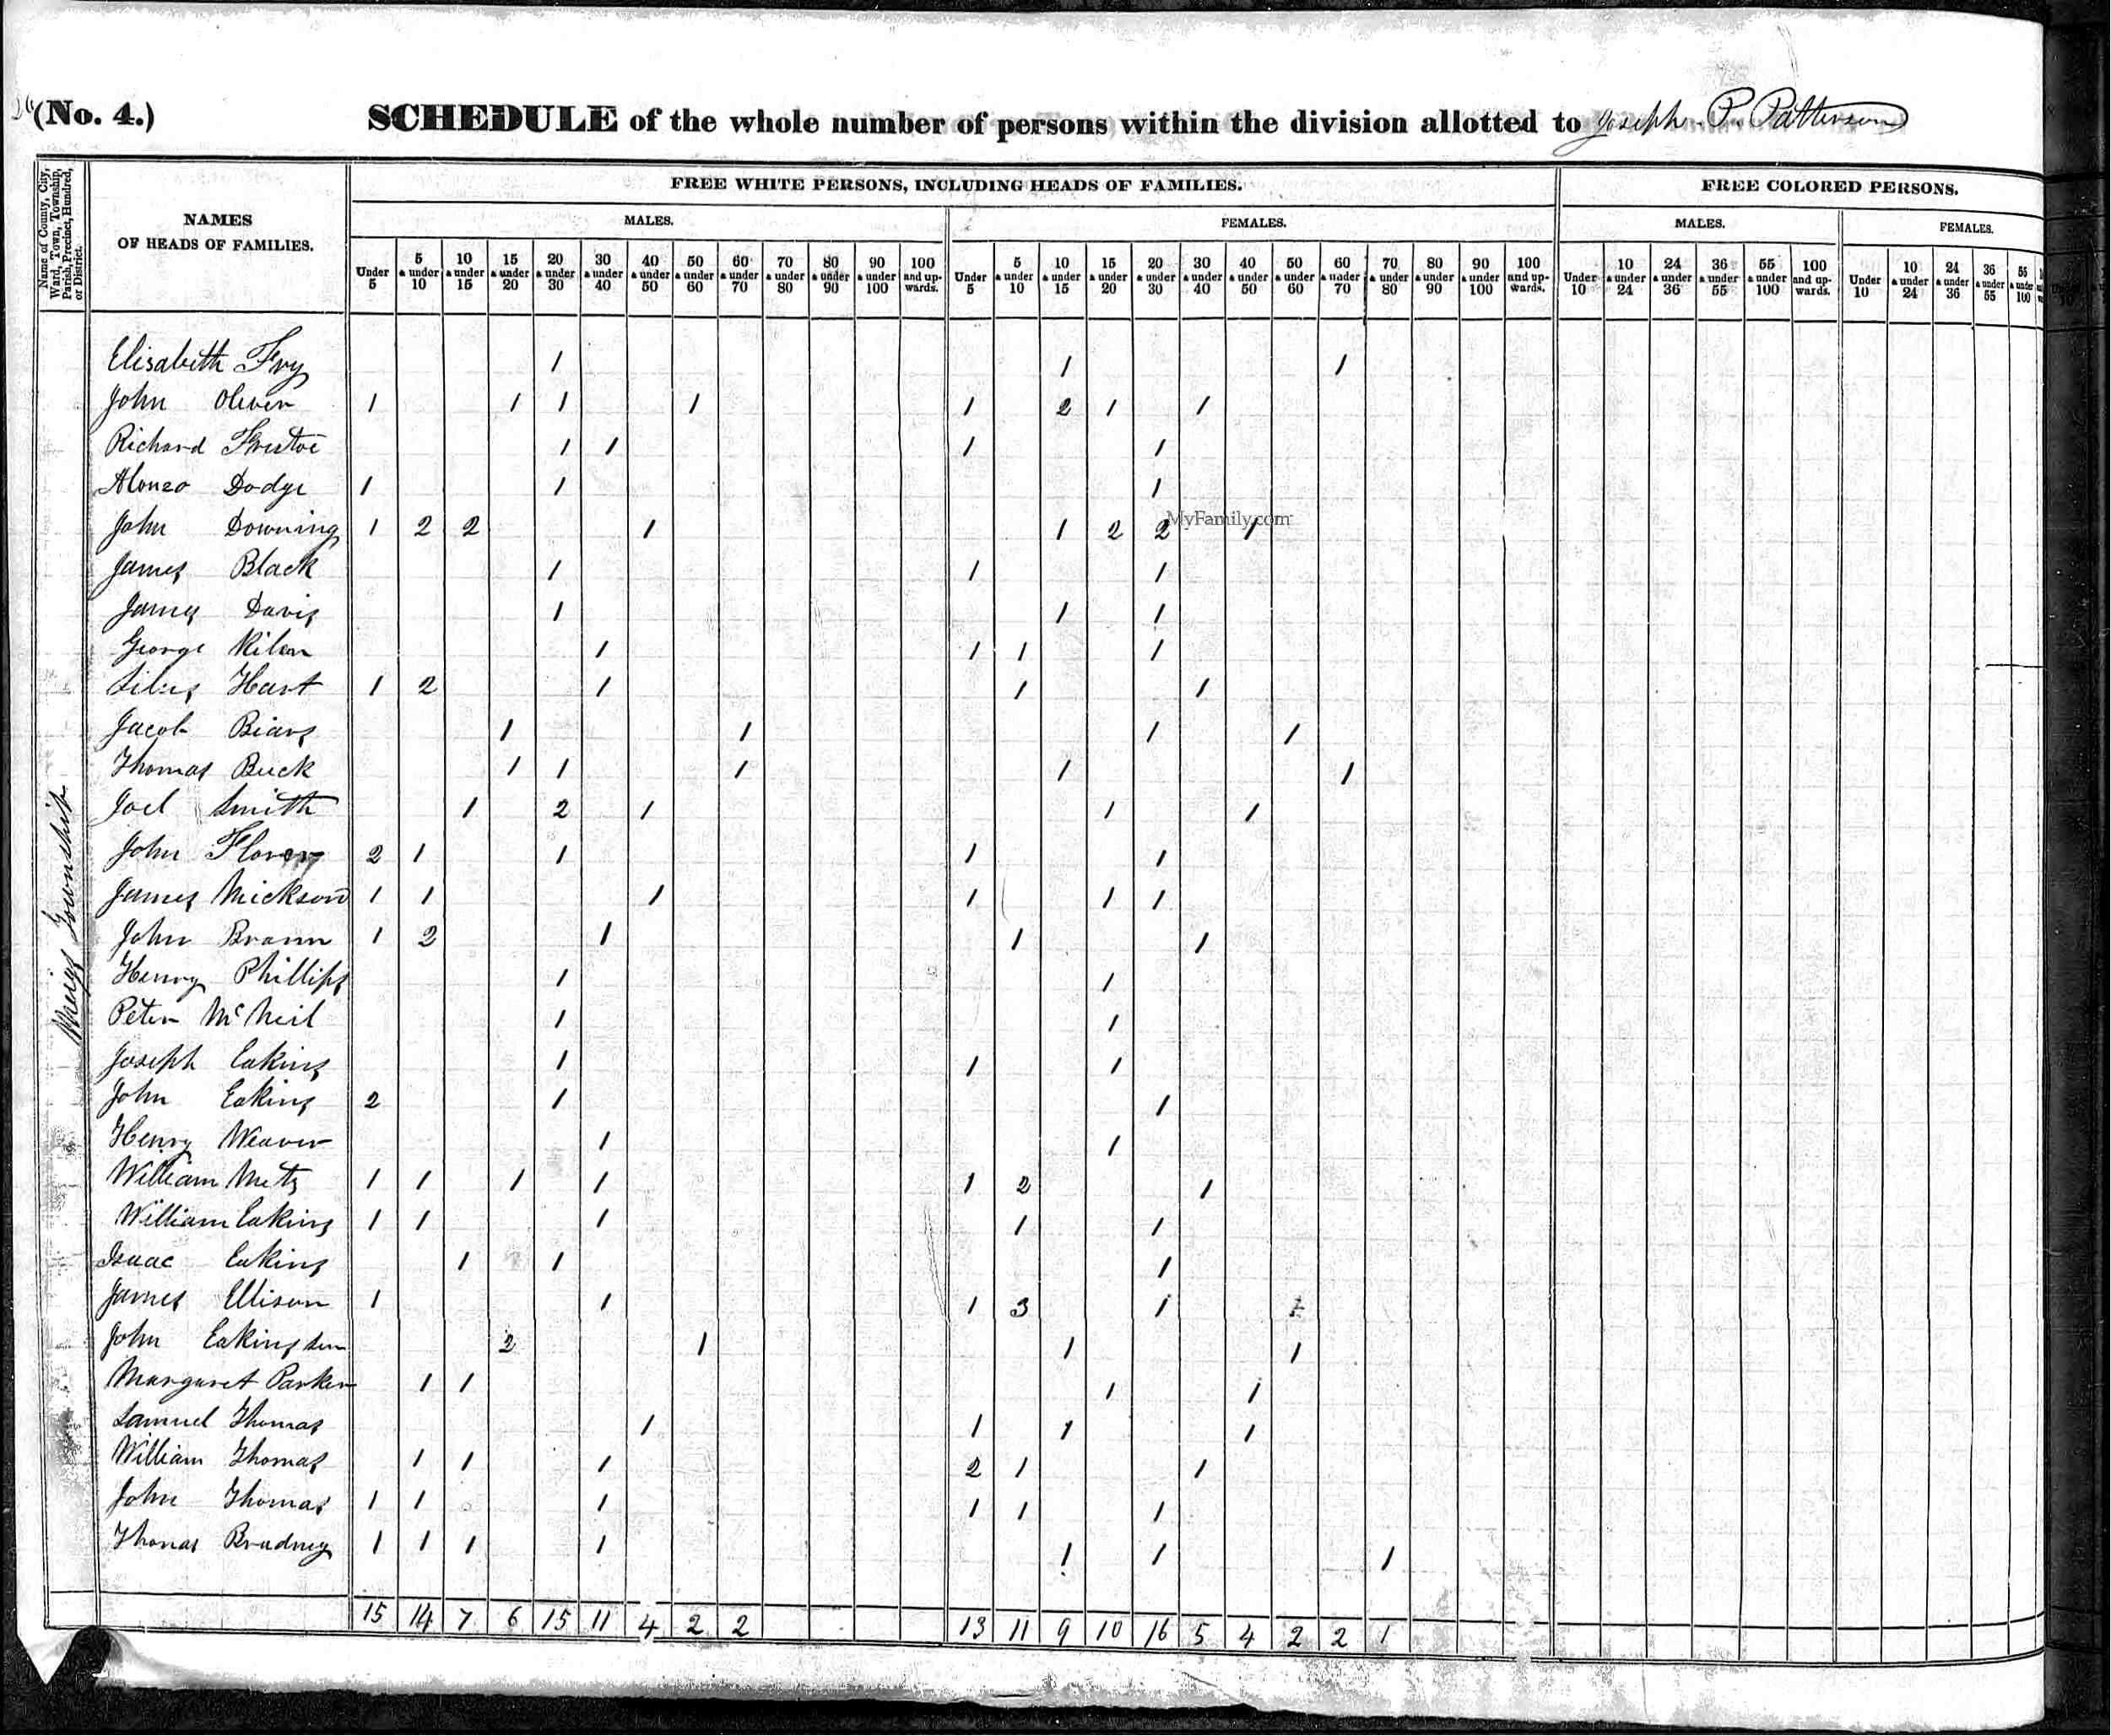 (No. 4.) SCHEDULE of the whole number of persons within the division allotted to Joseph P. Patterson
Name of County, City, Ward, Town, Township, Parish, Precinct, Hundred, or District.
NAMES OF HEADS OF FAMILIES.
FREE WHITE PERSONS, INCLUDING HEADS OF FAMILIES. FREE COLORED PERSONS.
MALES. FEMALES. MALES. FEMALES.
Under 5 5 & under 10 10 & under 15 15 & under 20 20 & under 30 30 & under 40 40 & under 50 50 & under 60 60 & under 70 70 & under 80 80 & under 90 90 & under 100 100 and upwards. Under 5 5 & under 10 10 & under 15 15 & under 20 20 & under 30 30 & under 40 40 & under 50 50 & under 60 60 & under 70 70 & under 80 80 & under 90 90 & under 100 100 and upwards. Under 10 10 & under 24 24 & under 36 36 & under 55 55 & under 100 100 and upwards. Under 10 10 & under 24 24 & under 36 36 & under 55 55 & under 100
Meigs Township
Elisabeth Fry 1 1 1
John Oliver 1 1 1 1 1 2 1 1
Richard Fristoe 1 1 1 1
Alonzo Dodge 1 1 1
John Downing 1 2 2 1 1 2 2 1
MyFamily.com
James Black 1 1 1
James Davis 1 1 1
George 1 1 1 1
Silus Hart 1 2 1 1 1
Jacob 1 1 1 1
Thomas Buck 1 1 1 1 1
Joel Smith 1 2 1 1 1
John 2 1 1 1 1
James Mickson 1 1 1 1 1 1
John 1 2 1 1 1
Henry Phillips 1 1
Peter McNeil 1 1
Joseph Eakins 1 1 1
John Eakins 2 1 1
Henry Weaver 1 1
William Metz 1 1 1 1 1 2 1
William Eakins 1 1 1 1 1
Isaac Eakins 1 1 1
James Ellison 1 1 1 3 1
John Eakins sen 2 1 1 1
Margaret Parker 1 1 1 1
Samuel Thomas 1 1 1 1
William Thomas 1 1 1 2 1 1
John Thomas 1 1 1 1 1 1
Thomas Bradney 1 1 1 1 1 1 1
15 14 7 6 15 11 4 2 2 13 11 9 10 16 5 4 2 2 1